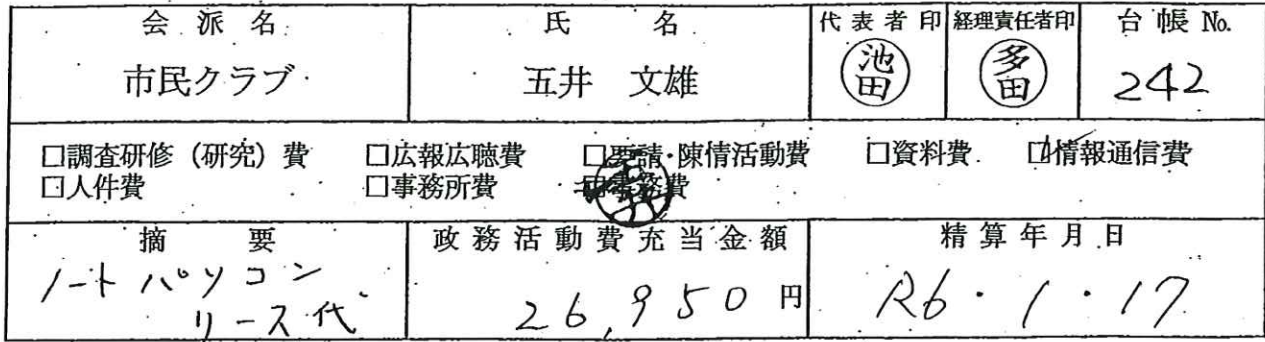 会派名 氏名 代表者印 経理責任者印 台帳No.
市民クラブ 五井 文雄 池田 多田 242
□調査研修（研究）費 □広報広聴費 □要請・陳情活動費 □資料費 ☑情報通信費
□人件費 □事務所費 □事務費
摘要 政務活動費充当金額 精算年月日
ノートパソコン
リース代 26,950円 R6・1・17